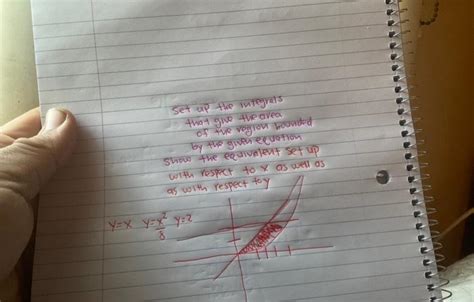 Set up the integrals
that give the area
of the region bounded
by the given equation
show the equivalent set up
with respect to x as well as
as with respect to y
y=x y=x²/8 y=2